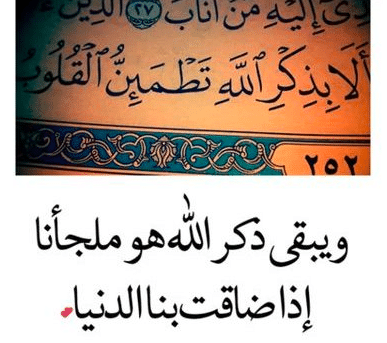 دِىٓ إِلَيْهِ مَنْ أَنَابَ ٢٧ ٱلَّذِينَ
أَلَا بِذِكْرِ ٱللَّهِ تَطْمَئِنُّ ٱلْقُلُوبُ
٢٥٢
ويبقى ذكر الله هو ملجأنا
إذا ضاقت بنا الدنيا